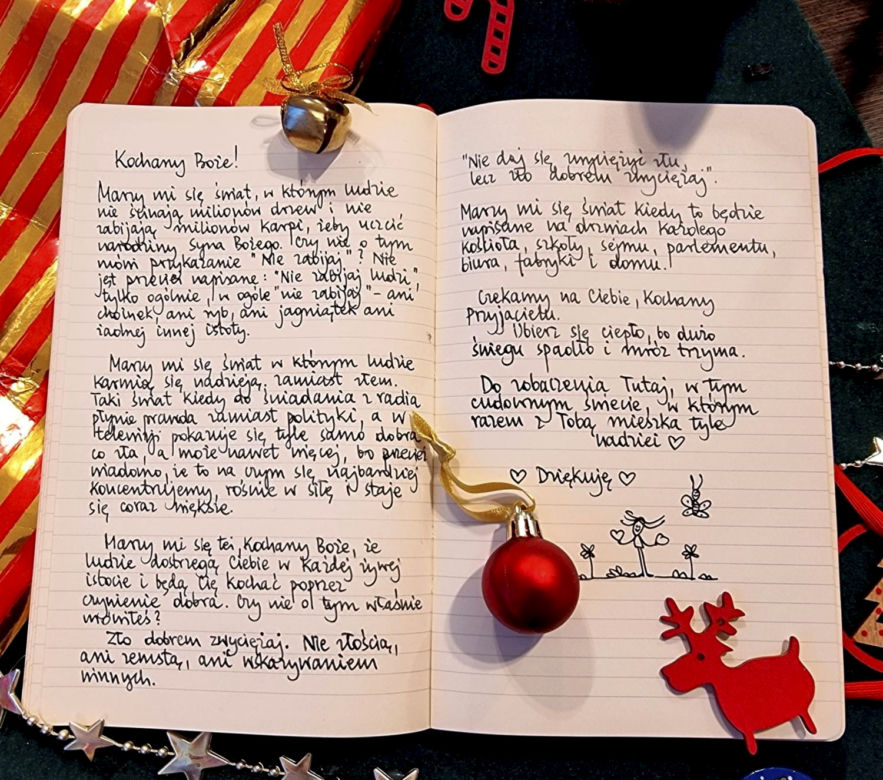 Kochany Boże!
Marzy mi się świat, w którym ludzie
nie ścinają milionów drzew i nie
zabijają milionów karpi, żeby uczcić
narodziny Syna Bożego. Czy nie o tym
mówi przykazanie "Nie zabijaj"? Nie
jest przecież napisane: "Nie zabijaj ludzi",
tylko ogólnie, w ogóle "nie zabijaj" - ani
choinek, ani ryb, ani jagniątek ani
żadnej innej istoty.
Marzy mi się świat w którym ludzie
karmią się nadzieją, zamiast złem.
Taki świat kiedy do śniadania z radia
płynie prawda zamiast polityki, a w
telewizji pokazuje się tyle samo dobra
co zła, a może nawet więcej, bo przecież
wiadomo, że to na czym się najbardziej
koncentrujemy, rośnie w siłę i staje
się coraz większe.
Marzy mi się też, Kochany Boże, że
ludzie dostrzegą Ciebie w każdej żywej
istocie i będą Cię kochać poprzez
czynienie dobra. Czy nie o tym właśnie
mówiłeś?
Zło dobrem zwyciężaj. Nie złością,
ani zemstą, ani wskazywaniem
winnych.
"Nie daj się zwyciężyć złu,
lecz zło dobrem zwyciężaj".
Marzy mi się świat kiedy to będzie
napisane na drzwiach każdego
kościoła, szkoły, sejmu, parlamentu,
biura, fabryki i domu.
Czekamy na Ciebie, Kochany
Przyjacielu.
Ubierz się ciepło, bo dużo
śniegu spadło i mróz trzyma.
Do zobaczenia Tutaj, w tym
cudownym świecie, w którym
razem z Tobą mieszka tyle
nadziei ♡
♡ Dziękuję ♡